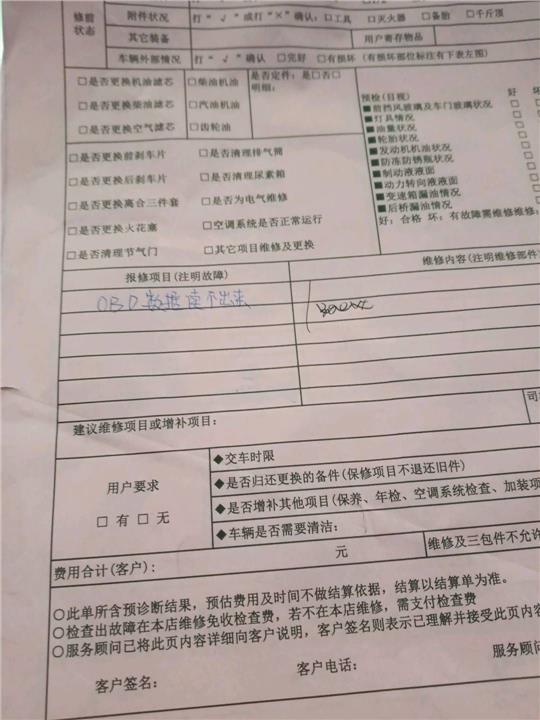 修前
状态
附件状况
打“√”或打“×”确认:□工具 □灭火器 □备胎 □千斤顶
其它装备
用户寄存物品
车辆外部情况
打“√”确认 □完好 □有损坏(有损坏部位标注有下表左图)
□是否更换机油滤芯 □柴油机油
□是否更换柴油滤芯 □汽油机油
□是否更换空气滤芯 □齿轮油
是否定件:是□否□
明细:
□是否更换前刹车片 □是否清理排气筒
□是否更换后刹车片 □是否清理尿素箱
□是否更换离合三件套 □是否为电气维修
□是否更换火花塞 □空调系统是否正常运行
□是否清理节气门 □其它项目维修及更换
预检(目视) 好 坏
■前挡风玻璃及车门玻璃状况
■灯具情况
■油量状况
■轮胎状况
■发动机机油状况
■防冻防锈瓶状况
■制动液液面
■动力转向液液面
■变速箱漏油情况
■后桥漏油情况
好:合格 坏:有故障需维修维修:
报修项目(注明故障)
维修内容(注明维修部件
OBD数据读不出来
建议维修项目或增补项目:
司
用户要求
□ 有 □ 无
◆交车时限
◆是否归还更换的备件(保修项目不退还旧件)
◆是否增补其他项目(保养、年检、空调系统检查、加装项
◆车辆是否需要清洁:
费用合计(客户): 元
维修及三包件不允许
○此单所含预诊断结果,预估费用及时间不做结算依据,结算以结算单为准。
○检查出故障在本店维修免收检查费,若不在本店维修,需支付检查费
○服务顾问已将此页内容详细向客户说明,客户签名则表示已理解并接受此页内容
客户签名: 客户电话: 服务顾问